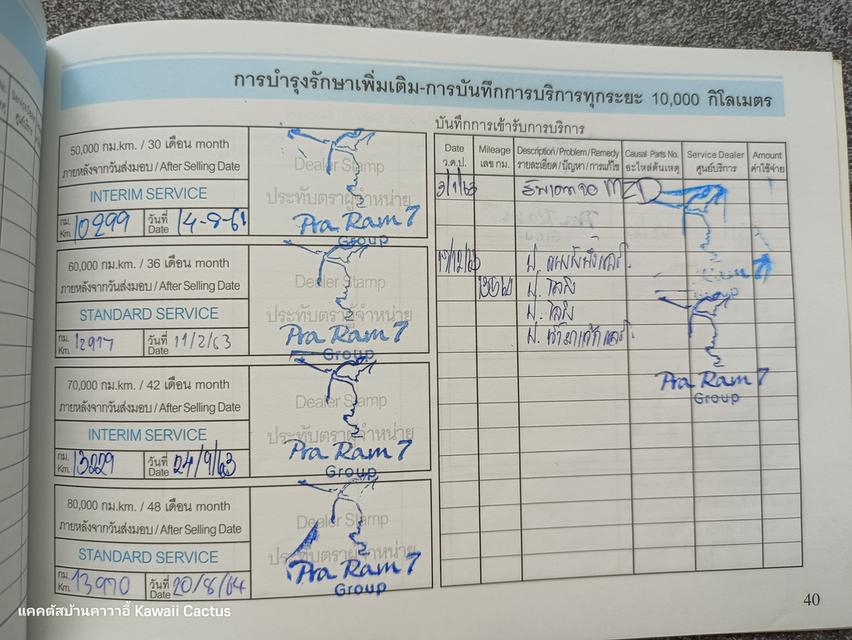 การบำรุงรักษาเพิ่มเติม-การบันทึกการบริการทุกระยะ 10,000 กิโลเมตร
50,000 กม.km. / 30 เดือน month
ภายหลังจากวันส่งมอบ / After Selling Date
INTERIM SERVICE
กม. Km. 10299 วันที่ Date 14-8-61
Dealer Stamp
ประทับตราผู้จำหน่าย
Pra Ram 7
Group
60,000 กม.km. / 36 เดือน month
ภายหลังจากวันส่งมอบ / After Selling Date
STANDARD SERVICE
กม. Km. 12917 วันที่ Date 11/2/63
Dealer Stamp
ประทับตราผู้จำหน่าย
Pra Ram 7
Group
70,000 กม.km. / 42 เดือน month
ภายหลังจากวันส่งมอบ / After Selling Date
INTERIM SERVICE
กม. Km. 13229 วันที่ Date 24/9/63
Dealer Stamp
ประทับตราผู้จำหน่าย
Pra Ram 7
Group
80,000 กม.km. / 48 เดือน month
ภายหลังจากวันส่งมอบ / After Selling Date
STANDARD SERVICE
กม. Km. 13970 วันที่ Date 20/8/64
Dealer Stamp
ประทับตราผู้จำหน่าย
Pra Ram 7
Group
บันทึกการเข้ารับการบริการ
Date ว.ด.ป. Mileage เลข กม. Description / Problem / Remedy รายละเอียด / ปัญหา / การแก้ไข Causal Parts No. อะไหล่ต้นเหตุ Service Dealer ศูนย์บริการ Amount ค่าใช้จ่าย
3/1/63 อัพเดทจอ MZD
Pra Ram 7
Group
40
แคคตัสบ้านคาวาอี้ Kawaii Cactus